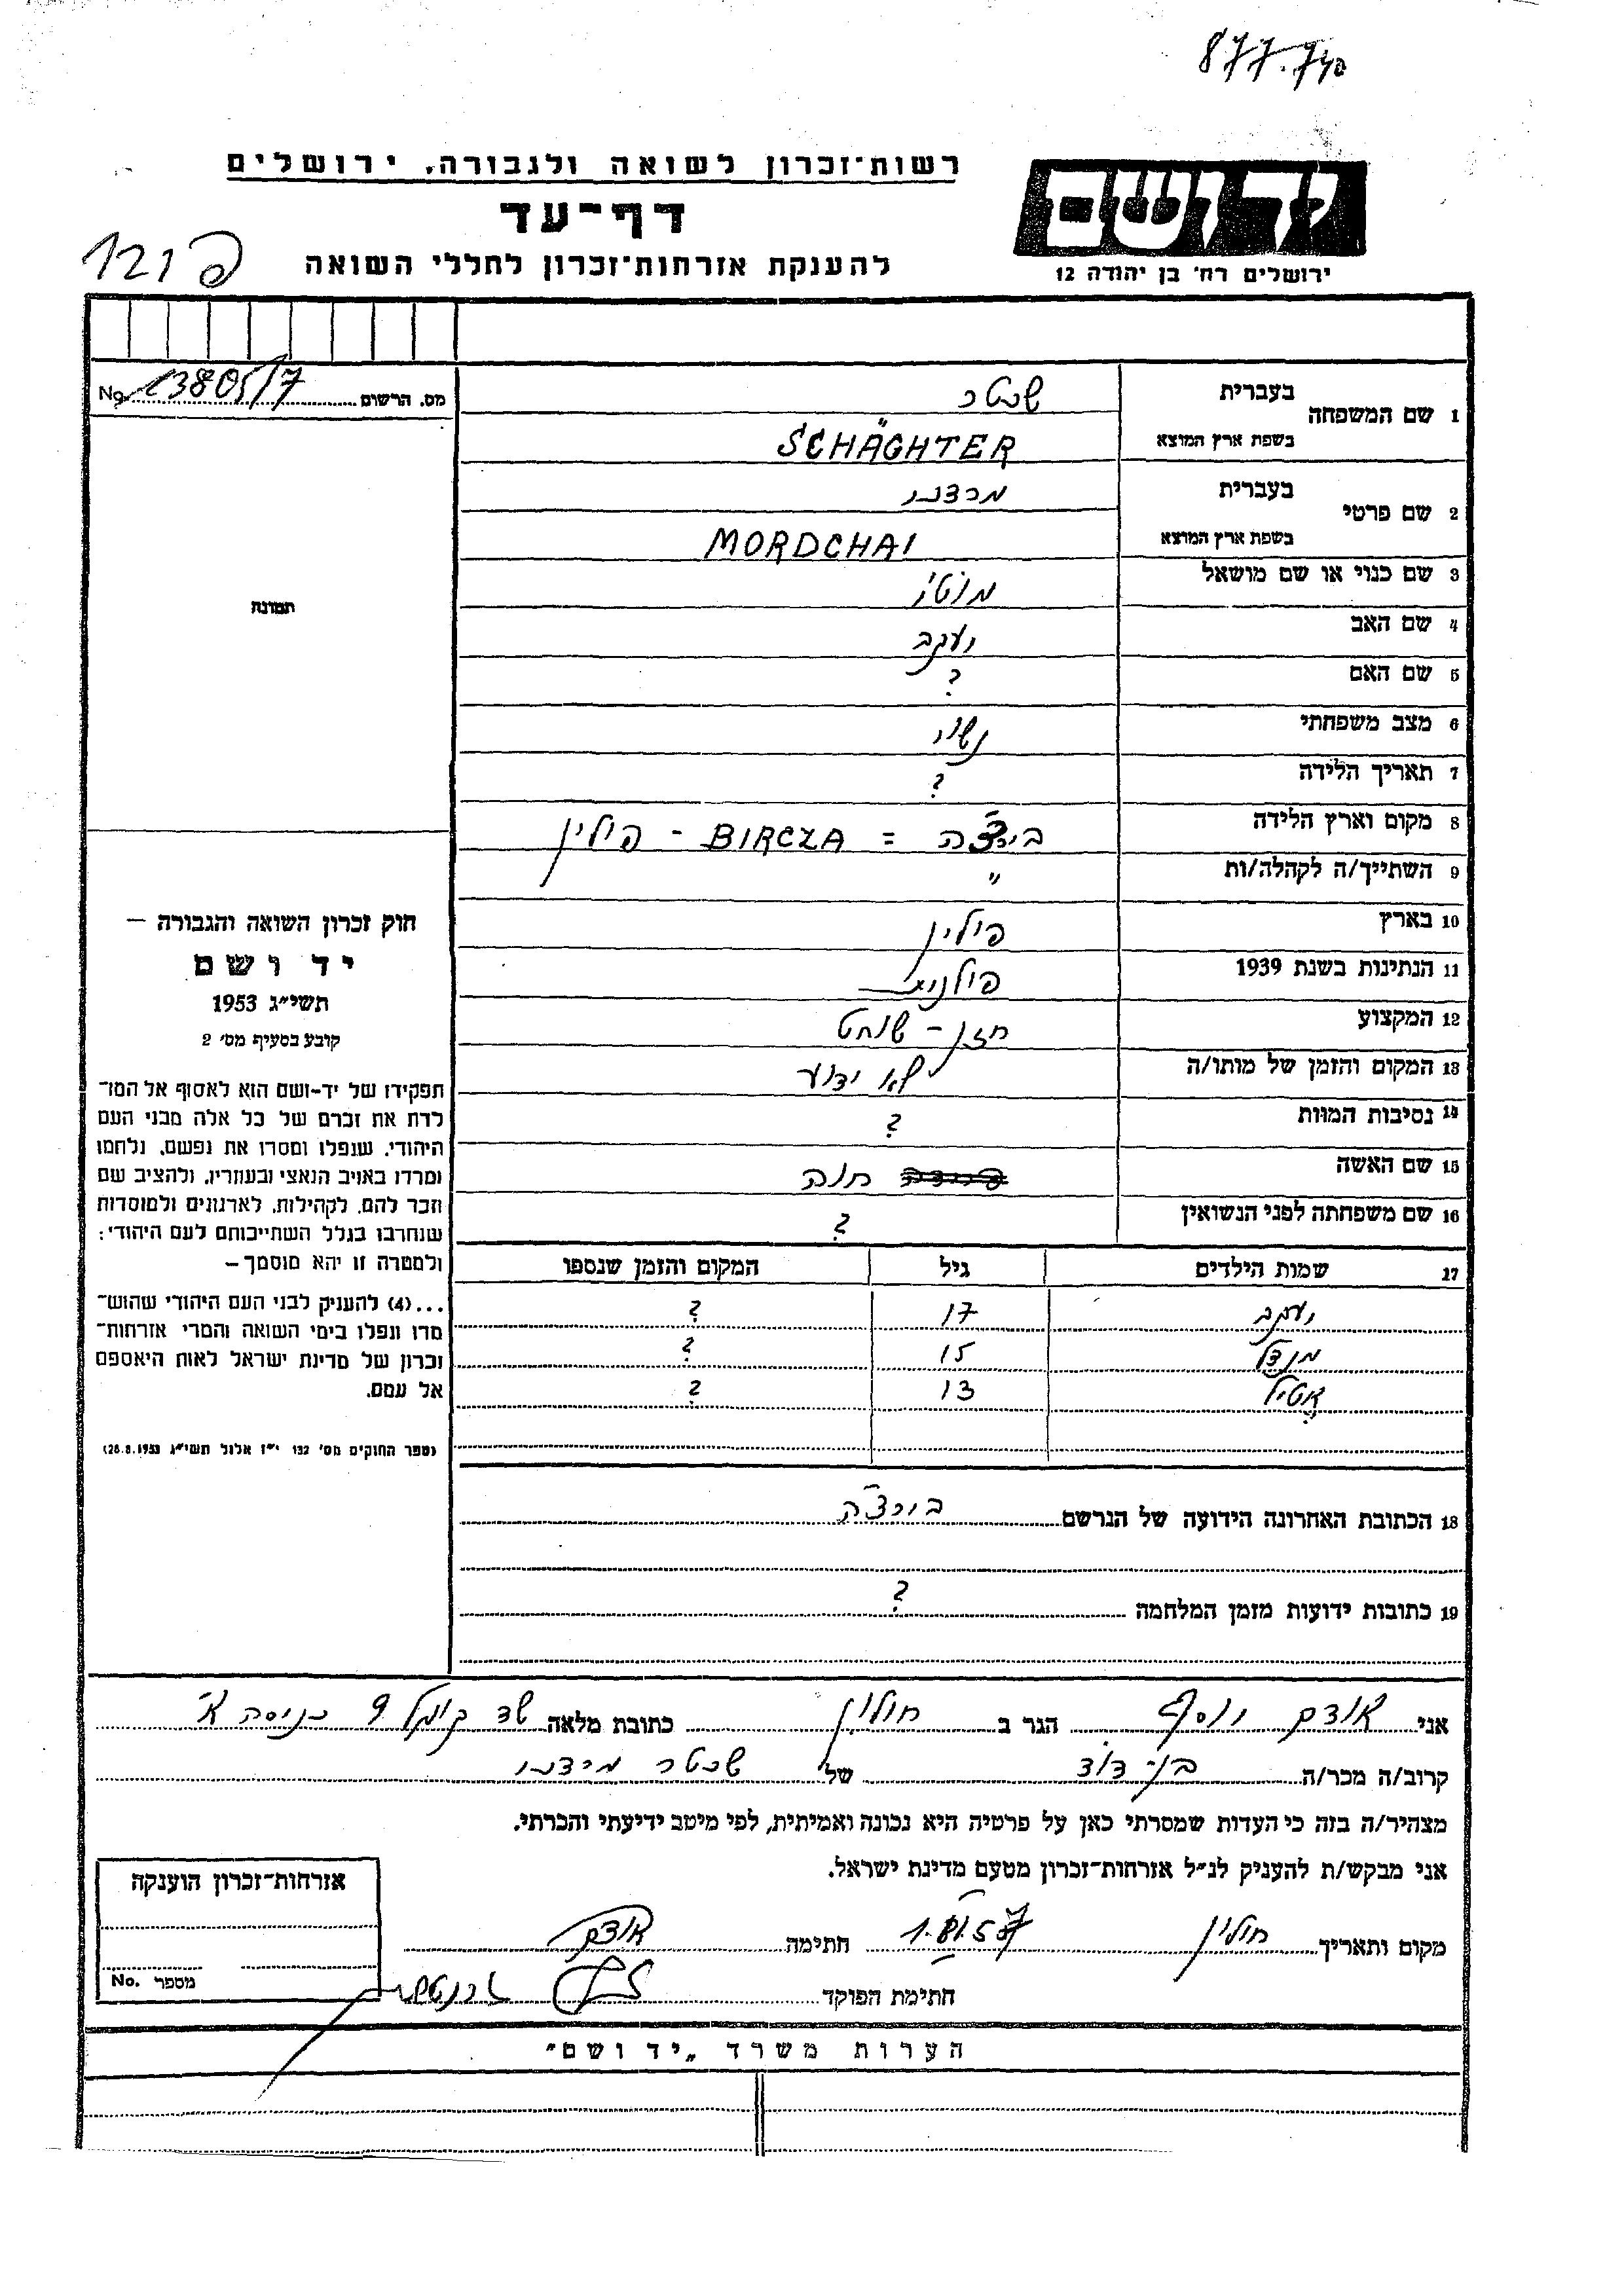 רשות־זכרון לשואה ולגבורה, ירושלים
דף־עד
להענקת אזרחות־זכרון לחללי השואה
יד ושם
ירושלים רח׳ בן יהודה 12
121
מס. הרשום No.
1 שם המשפחה בעברית שכטר
בשפת ארץ המוצא SCHÄCHTER
2 שם פרטי בעברית מרדכי
בשפת ארץ המוצא MORDCHAI
3 שם כנוי או שם מושאל מוטי
4 שם האב יעקב
5 שם האם ?
6 מצב משפחתי נשוי
7 תאריך הלידה ?
8 מקום וארץ הלידה בירצ׳ה = BIRCZA - פולין
9 השתייך/ה לקהלה/ות "
10 בארץ פולין
11 הנתינות בשנת 1939 פולנית
12 המקצוע חזן - שוחט
13 המקום והזמן של מותו/ה לא ידוע
14 נסיבות המות ?
15 שם האשה חנה
16 שם משפחתה לפני הנשואין ?
17 שמות הילדים גיל המקום והזמן שנספו
יעקב 17 ?
מנדל 15 ?
אטיל 13 ?
18 הכתובת האחרונה הידועה של הנרשם בירצ׳ה
19 כתובות ידועות מזמן המלחמה ?
תמונה
חוק זכרון השואה והגבורה –
יד ושם
תשי״ג 1953
קובע בסעיף מס׳ 2
תפקידו של יד-ושם הוא לאסוף אל המו־
לדת את זכרם של כל אלה מבני העם
היהודי, שנפלו ומסרו את נפשם, נלחמו
ומרדו באויב הנאצי ובעוזריו, ולהציב שם
וזכר להם, לקהילות, לארגונים ולמוסדות
שנחרבו בגלל השתייכותם לעם היהודי;
ולמטרה זו יהא מוסמך –
...(4) להעניק לבני העם היהודי שהוש־
מדו ונפלו בימי השואה והמרי אזרחות־
זכרון של מדינת ישראל לאות היאספם
אל עמם.
(ספר החוקים מס׳ 132 י״ז אלול תשי״ג 28.8.1953)
אני אודם יוסף הגר ב חולון כתובת מלאה שד 9 כניסה א׳
קרוב/ה מכר/ה בן-דוד של שכטר מרדכי
מצהיר/ה בזה כי העדות שמסרתי כאן על פרטיה היא נכונה ואמיתית, לפי מיטב ידיעתי והכרתי.
אני מבקש/ת להעניק לנ״ל אזרחות־זכרון מטעם מדינת ישראל.
מקום ותאריך חולון חתימה אודם
חתימת הפוקד
אזרחות־זכרון הוענקה
מספר No.
הערות משרד „יד ושם״